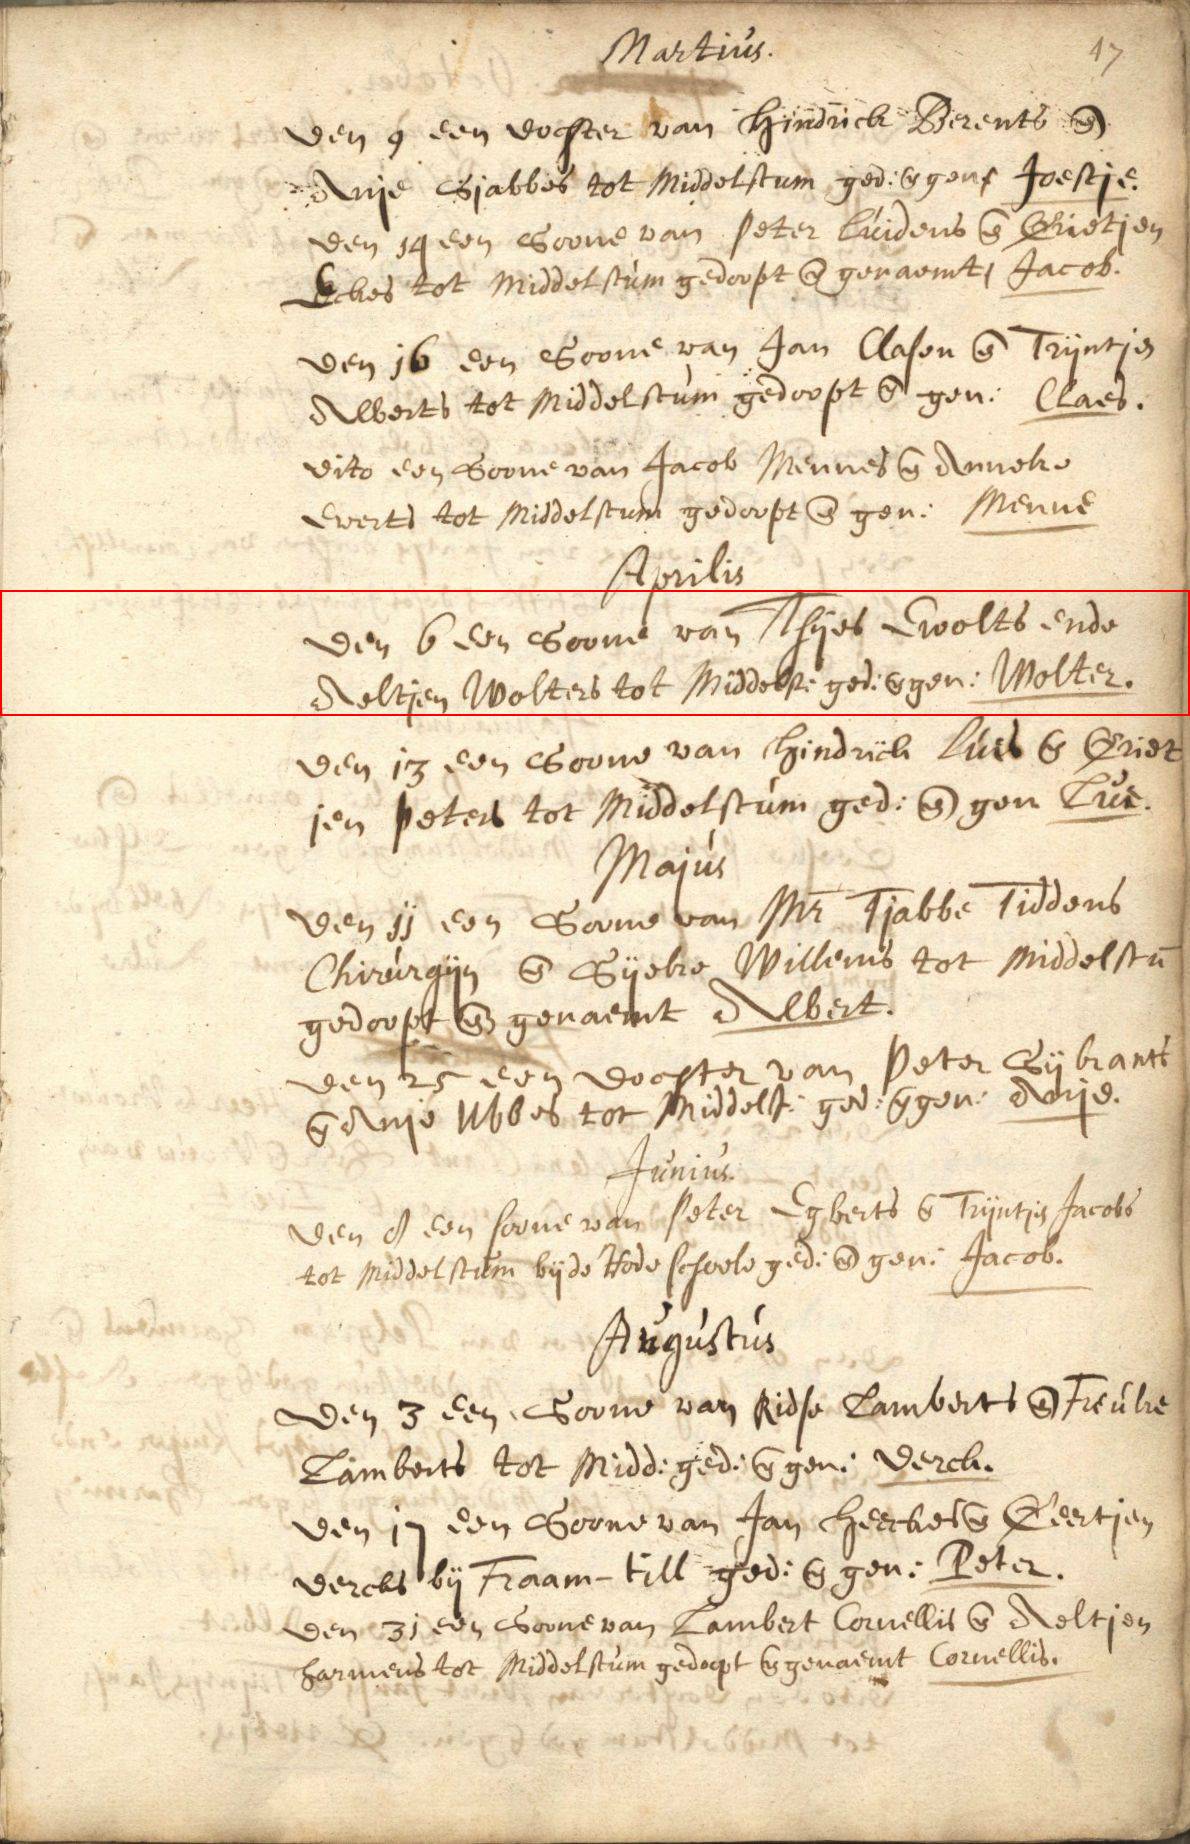 Martius.
47
den 9 een dochter van Hindrick Berents &
Anje Sjabbes tot Middelstum ged: & gen: Joestje.
den 14 een Soone van Peter Luidens & Grietjen
Eckes tot Middelstum gedoopt & genaemt, Jacob.
den 16 een Soone van Jan Clasen & Trijntjen
Alberts tot Middelstum gedoopt & gen: Claes.
dito een Soone van Jacob Mennes & Anneke
Everts tot Middelstum gedoopt & gen: Menne
Aprilis
den 6 een Soone van Thijes Ewolts ende
Aeltjen Wolters tot Middelst: ged: & gen: Wolter.
den 13 een Soone van Hindrick Lues & Griet
jen Peters tot Middelstum ged: & gen Lue.
Majus
den 11 een Soone van Mr Tjabbe Tiddens
Chirurgijn & Sijeke Willems tot Middelstū
gedoopt & genaemt Albert.
den 25 een dochter van Peter Sijbrants
& Anje Ubbes tot Middelst: ged: & gen: Anje.
Junius.
den 8 een soone van Peter Egberts & Trijntjen Jacobs
tot Middelstum bij de Rode schoole ged: & gen: Jacob.
Augustus
den 3 een Soone van Ridse Lamberts & Freuke
Lamberts tot Midd: ged: & gen: Derck.
den 17 een Soone van Jan Heerkes & Geertjen
dercks bij Fraam-till ged: & gen: Peter.
den 31 een Soone van Lambert Cornellis & Aeltjen
harmens tot Middelstum gedoopt & genaemt Cornellis.